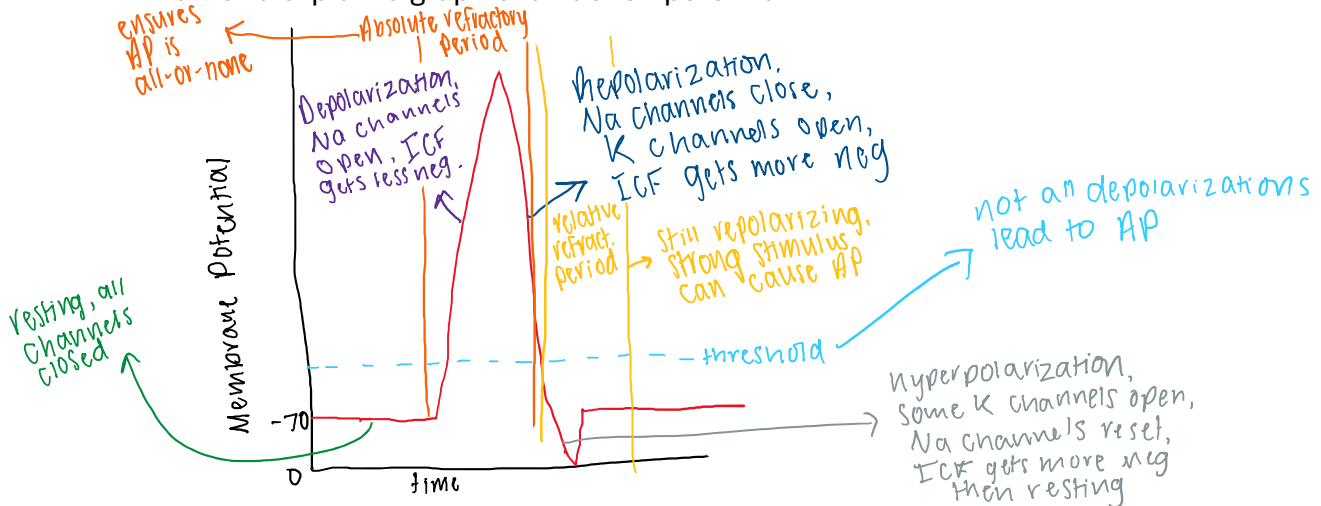 ensures
AP is
all-or-none
Absolute refractory
period
Depolarization,
Na channels
open, ICF
gets less neg.
Repolarization,
Na channels close,
K channels open,
ICF gets more neg
relative
refract.
period
still repolarizing,
strong stimulus
can cause AP
not all depolarizations
lead to AP
threshold
resting, all
channels
closed
Membrane Potential
-70
0
time
hyperpolarization,
some K channels open,
Na channels reset,
ICF gets more neg
then resting